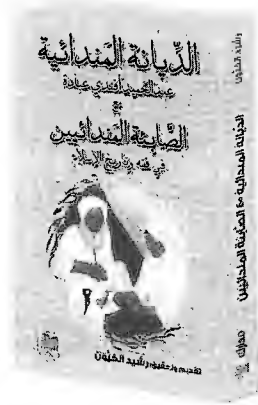 الديانة المندائية
عبدالحميد أفندي عبادة
مع
الصابئة المندائيين
في فقه وتاريخ الإسلام
تقديم وتحقيق رشيد الخيّون
رشيد الخيون
الديانة المندائية مع الصابئة المندائيين
مدارك